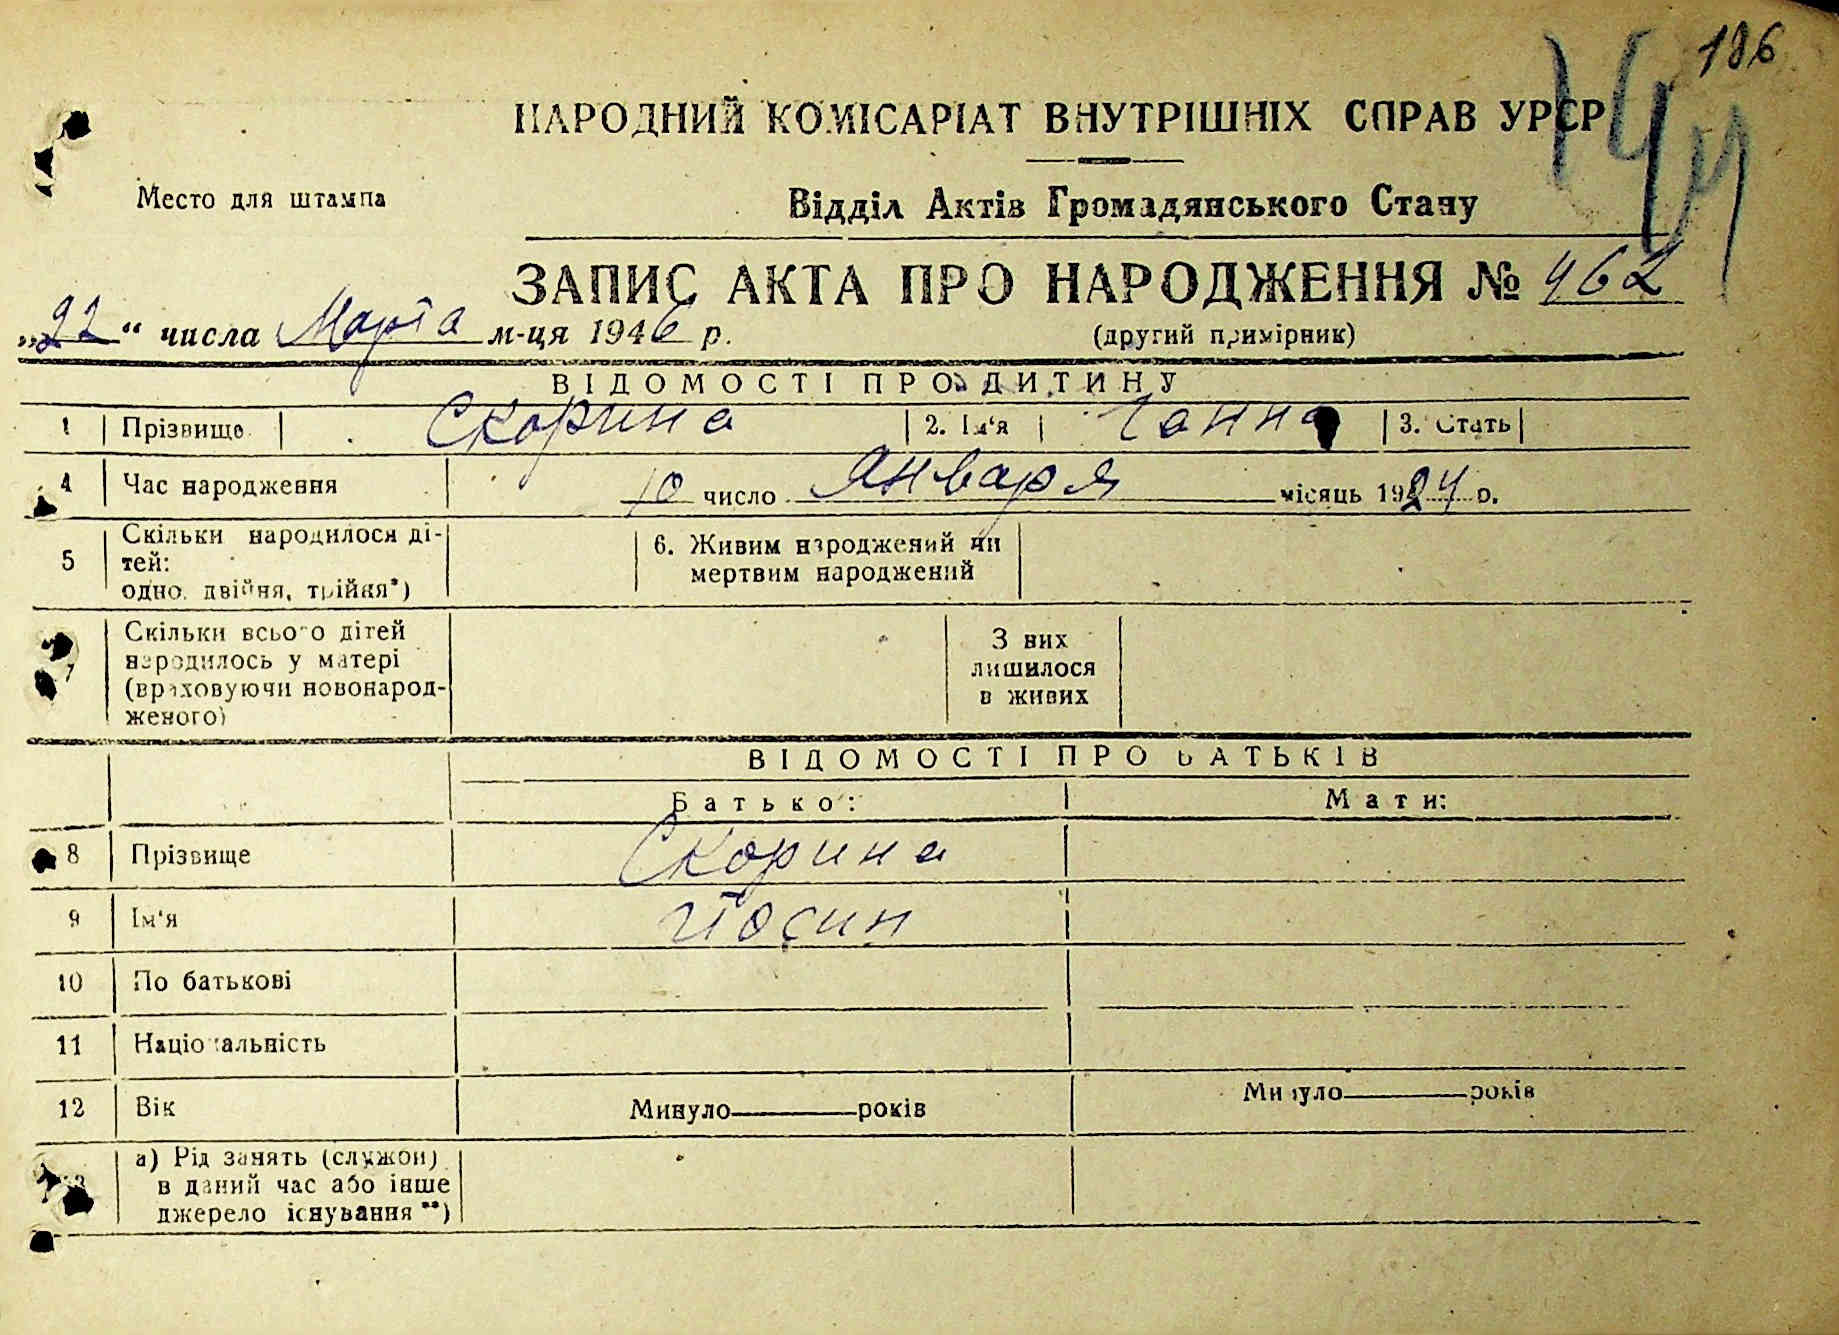 186
НАРОДНИЙ КОМІСАРІАТ ВНУТРІШНІХ СПРАВ УРСР
Место для штампа
Відділ Актів Громадянського Стану
ЗАПИС АКТА ПРО НАРОДЖЕННЯ № 462
„22“ числа Марта м-ця 1946 р.
(другий примірник)
ВІДОМОСТІ ПРО ДИТИНУ
1 Прізвище Скорина 2. Ім'я Ганна 3. Стать
4 Час народження 10 число Января місяць 1924 р.
5 Скільки народилося ді-
тей:
одно, двійня, трійня*)
6. Живим народжений чи
мертвим народжений
7 Скільки всього дітей
народилось у матері
(враховуючи новонарод-
женого)
З них
лишилося
в живих
ВІДОМОСТІ ПРО БАТЬКІВ
Батько: Мати:
8 Прізвище Скорина
9 Ім'я Йосип
10 По батькові
11 Національність
12 Вік Минуло років Минуло років
13 а) Рід занять (служби)
в даний час або інше
джерело існування **)